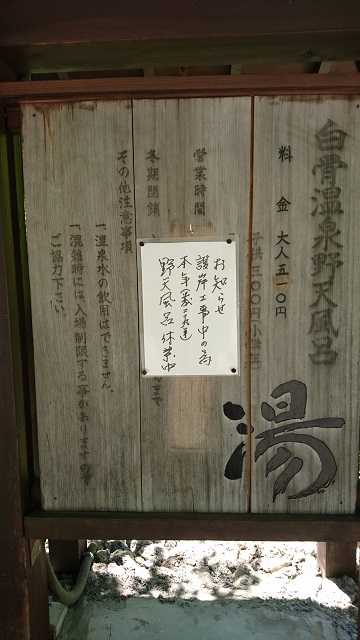 白骨温泉野天風呂
湯
料 金 大人五一〇円
子供三〇〇円
営業時間
冬期閉鎖
その他注意事項
一、温泉水の飲用はできません。
一、混雑時には入場制限する事がありますので
ご協力下さい。
お知らせ
護岸工事中の為
本年
野天風呂 休業中